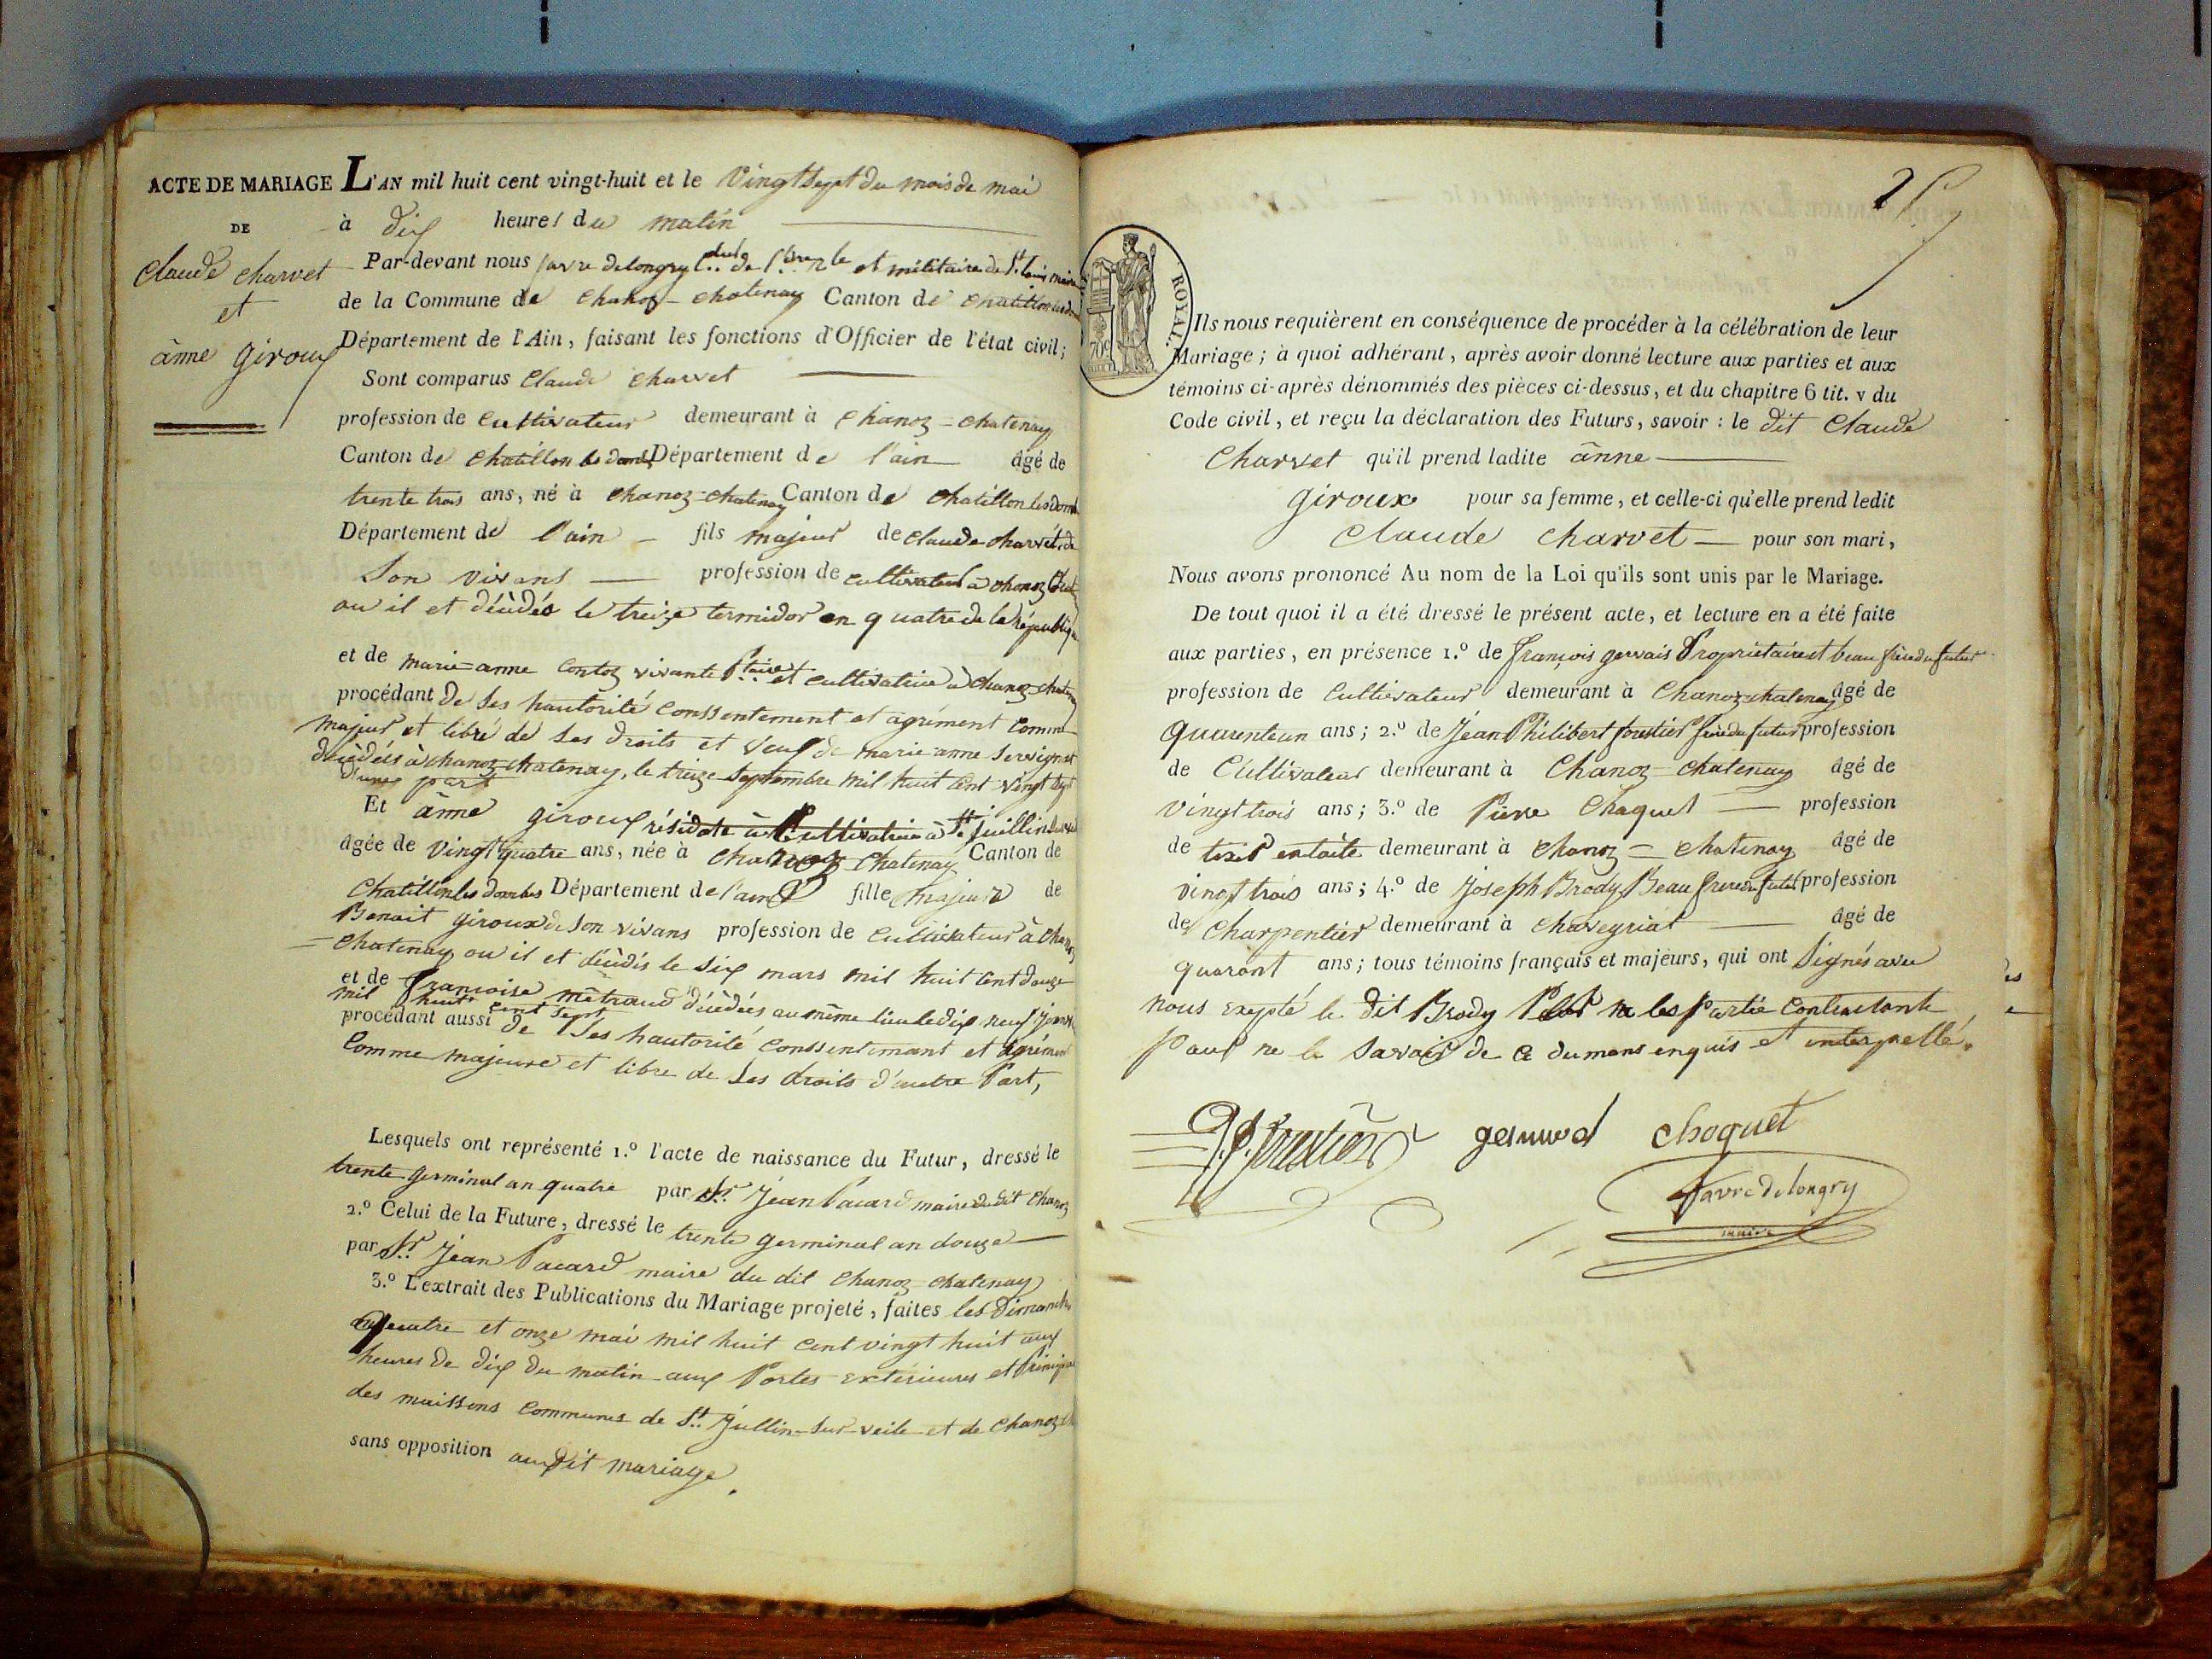 ACTE DE MARIAGE
DE
Claude Charvet
et
ânne giroux
L'AN mil huit cent vingt-huit et le vingt sept du mois de mai
à dix heures du matin
Par-devant nous favre delongry de et militaire de St. Louis maire
de la Commune de Chanoz-chatenay Canton de Chatillon
Département de l'Ain, faisant les fonctions d'Officier de l'état civil;
Sont comparus Claude Charvet
profession de cultivateur demeurant à Chanoz-chatenay
Canton de Chatillon les Département de l'ain âgé de
trente trois ans, né à Chanoz-chatenay Canton de Chatillon les domb
Département de l'ain fils majeur de Claude charvet, de
son vivans profession de cultivateur à chanoz
ou il et décèdés le treize termidor an quatre de la républiq
et de marie-anne Contoz vivante et cultivatrice à Chanoz-chaten
procédant de ses hautorité conssentement et agrément comme
majeur et libre de ses droits et veuf de marie anne servignat
décèdés à chanoz chatenay, le treize septembre mil huit cent vingt sept
d'une part
Et ânne giroux cultivatrice à St. juillin
âgée de vingt quatre ans, née à chanoz chatenay Canton de
Chatillon les dombes Département de l'ain fille majeure de
Benait giroux de son vivans profession de cultivateur à Chanoz
= chatenay ou il et décèdés le six mars mil huit cent douze
et de françoise mêtraud décèdées au même lieu le dix neuf janvi
mil huit cent sept
procédant aussi de ses hautorité conssentemant et agrément
Comme majeure et libre de ses droits d'autre Part,
Lesquels ont représenté 1.º l'acte de naissance du Futur, dressé le
trente germinal an quatre par Sr. Jean Pacard maire du dit Chanoz
2.º Celui de la Future, dressé le trente germinal an douze
par Sr. Jean Pacard maire du dit Chanoz-chatenay
3.º L'extrait des Publications du Mariage projeté, faites les Dimanch
quatre et onze mai mil huit cent vingt huit aux
heures de dix du matin aux Portes extérieures et Principa
des maissons communes de St. Jullin-sur-veile et de Chanoz
sans opposition audit mariage.
ROYAL.
70c
Ils nous requièrent en conséquence de procéder à la célébration de leur
Mariage; à quoi adhérant, après avoir donné lecture aux parties et aux
témoins ci-après dénommés des pièces ci-dessus, et du chapitre 6 tit. v du
Code civil, et reçu la déclaration des Futurs, savoir: le dit Claude
Charvet qu'il prend ladite ânne
giroux pour sa femme, et celle-ci qu'elle prend ledit
Claude Charvet pour son mari,
Nous avons prononcé Au nom de la Loi qu'ils sont unis par le Mariage.
De tout quoi il a été dressé le présent acte, et lecture en a été faite
aux parties, en présence 1.º de françois gervais Propriétaire et beau frère du futur
profession de Cultivateur demeurant à Chanoz-chatenay âgé de
quarenteun ans; 2.º de Jéan Philibert forestier frère du futur profession
de Cultivateur demeurant à Chanoz-chatenay âgé de
vingt trois ans; 3.º de Pierre Choquet profession
de tixier en toile demeurant à Chanoz = chatenay âgé de
vingt trois ans; 4.º de Joseph Brody Beau frere du futur profession
de Charpentier demeurant à Chaveyriat âgé de
quarant ans; tous témoins français et majeurs, qui ont signés avec
nous exepté le dit Brody ne les partie contractante
pour ne le savoir de ce dument enquis et interpellé.
choquet
favre delongry
maire